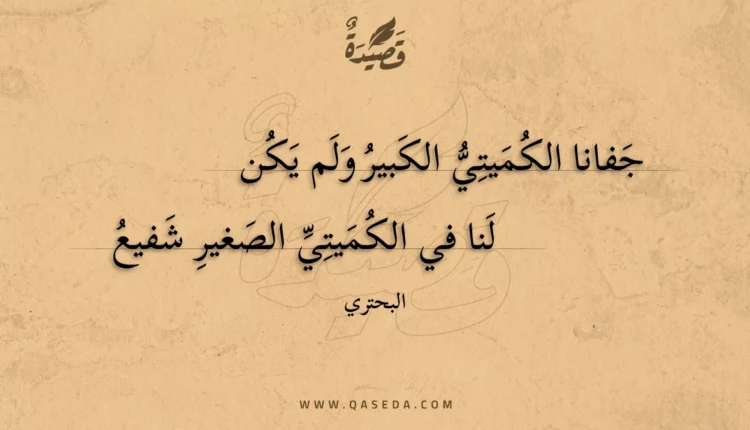 قَصِيْدَةٌ
جَفانا الكُمَيتِيُّ الكَبيرُ وَلَم يَكُن
لَنا في الكُمَيتِيِّ الصَغيرِ شَفيعُ
البحتري
WWW.QASEDA.COM